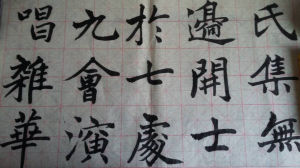 氏集無
邊開士
於七處
九會演
唱雜華